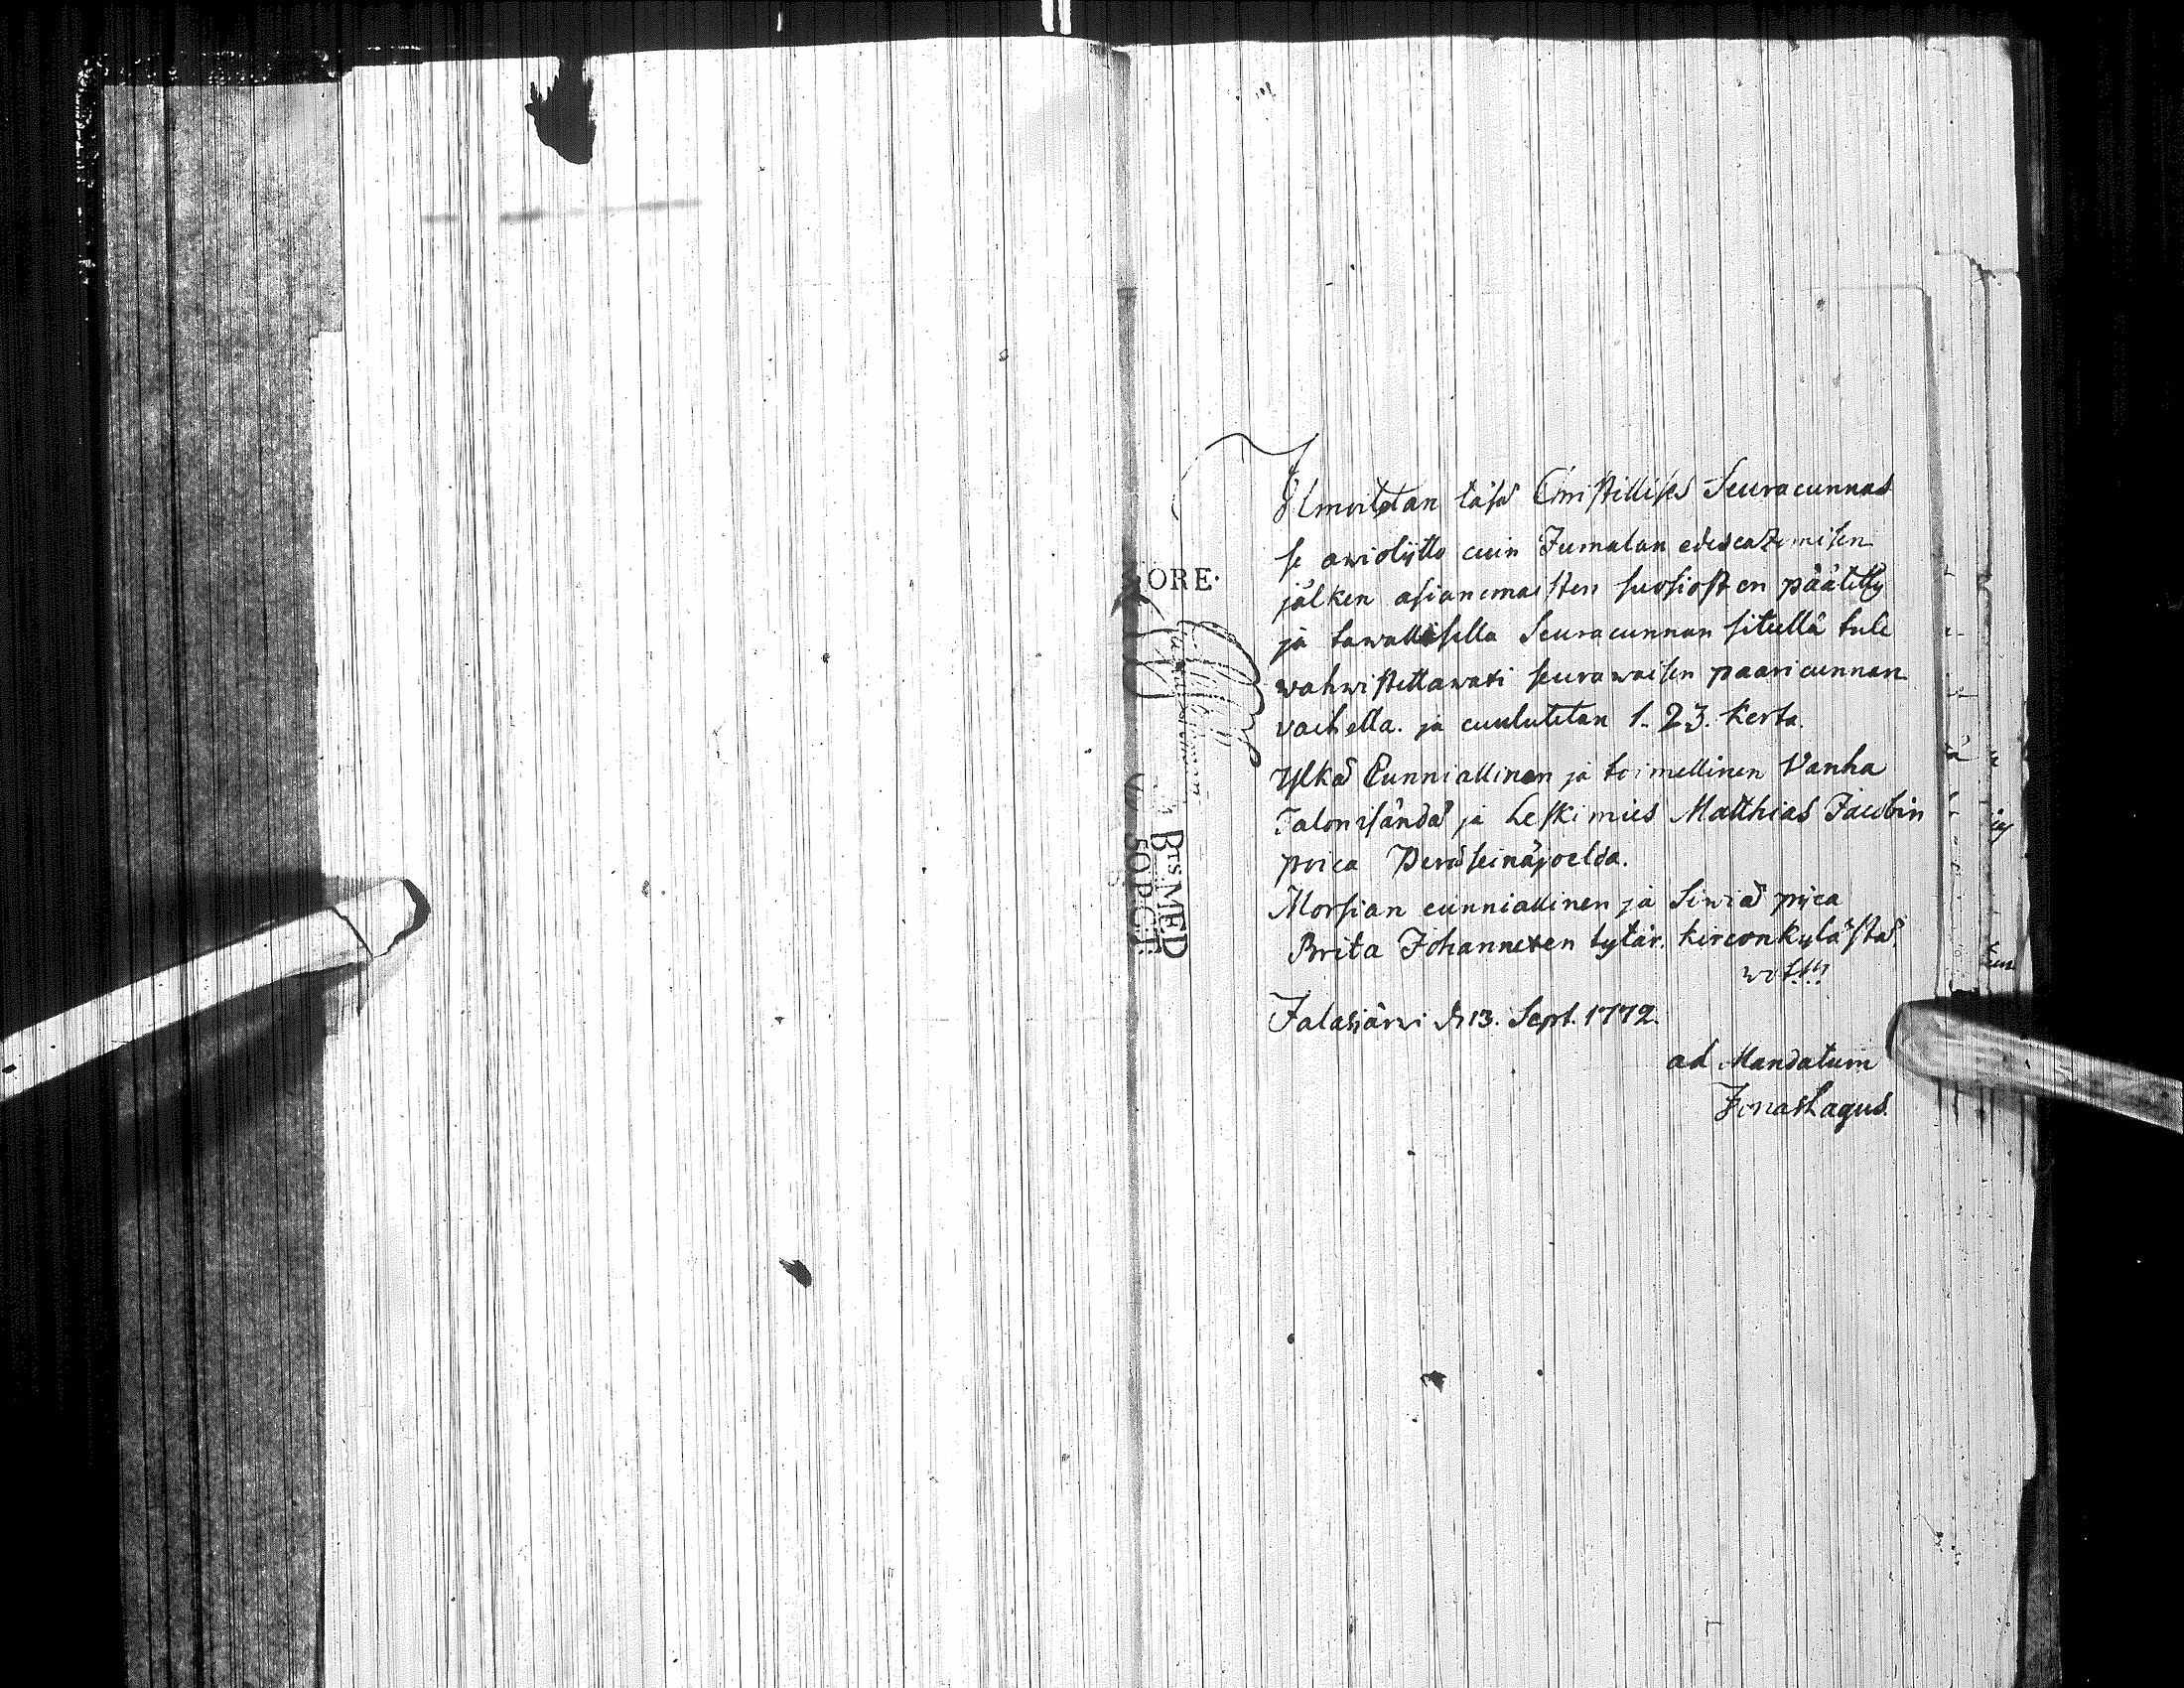 Ilmoitetan täsä Christillises Seuracunnas
se awioliitto cuin Jumalan edescazomisen
jälken asianomaisten suosiost on päätetty
ja tawallisella Seuracunnan siteellä tule
wahwistettawaxi seurawaisen paaricunnan
vaihella. ja cuulutetan 1. 2 3. kerta.
Ylkä Cunniallinen ja toimellinen Vanha
Talon isändä ja Leskimies Matthias Jacobin
poica Peräseinäjoelda.
Morsian cunniallinen ja Siwiä pijca
Brita Johannexen tytär. kirconkylästä.
wot!!!
Jalasjärwi d. 13. Sept. 1772.
ad Mandatum
Jonas Lagus.
ORE.
BTS MED
50 P.C:T: